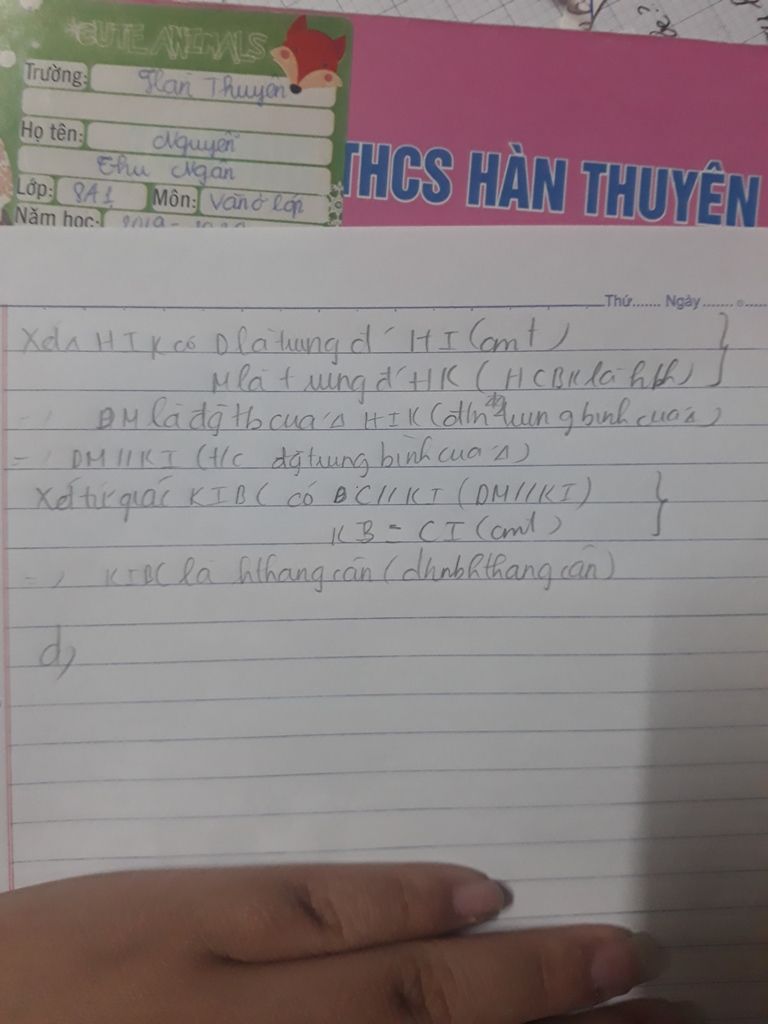 CUTE ANIMALS
Trường: Hàn Thuyên
Họ tên: Nguyễn
Thu Ngân
Lớp: 8A1 Môn: Văn ở lớp
Năm học: 2019-
THCS HÀN THUYÊN
Thứ....... Ngày.......
Xét ∆ HIK có D là trung đ' HI (cmt) }
M là trung đ' HK (HCBK là hbh) }
=> DM là đg tb của ∆ HIK (đ/n đg trung bình của ∆)
=> DM // KI (t/c đg trung bình của ∆)
Xét tứ giác KIBC có BC // KI (DM // KI) }
KB = CI (cmt) }
=> KIBC là hthang cân (dhnb hthang cân)
d,